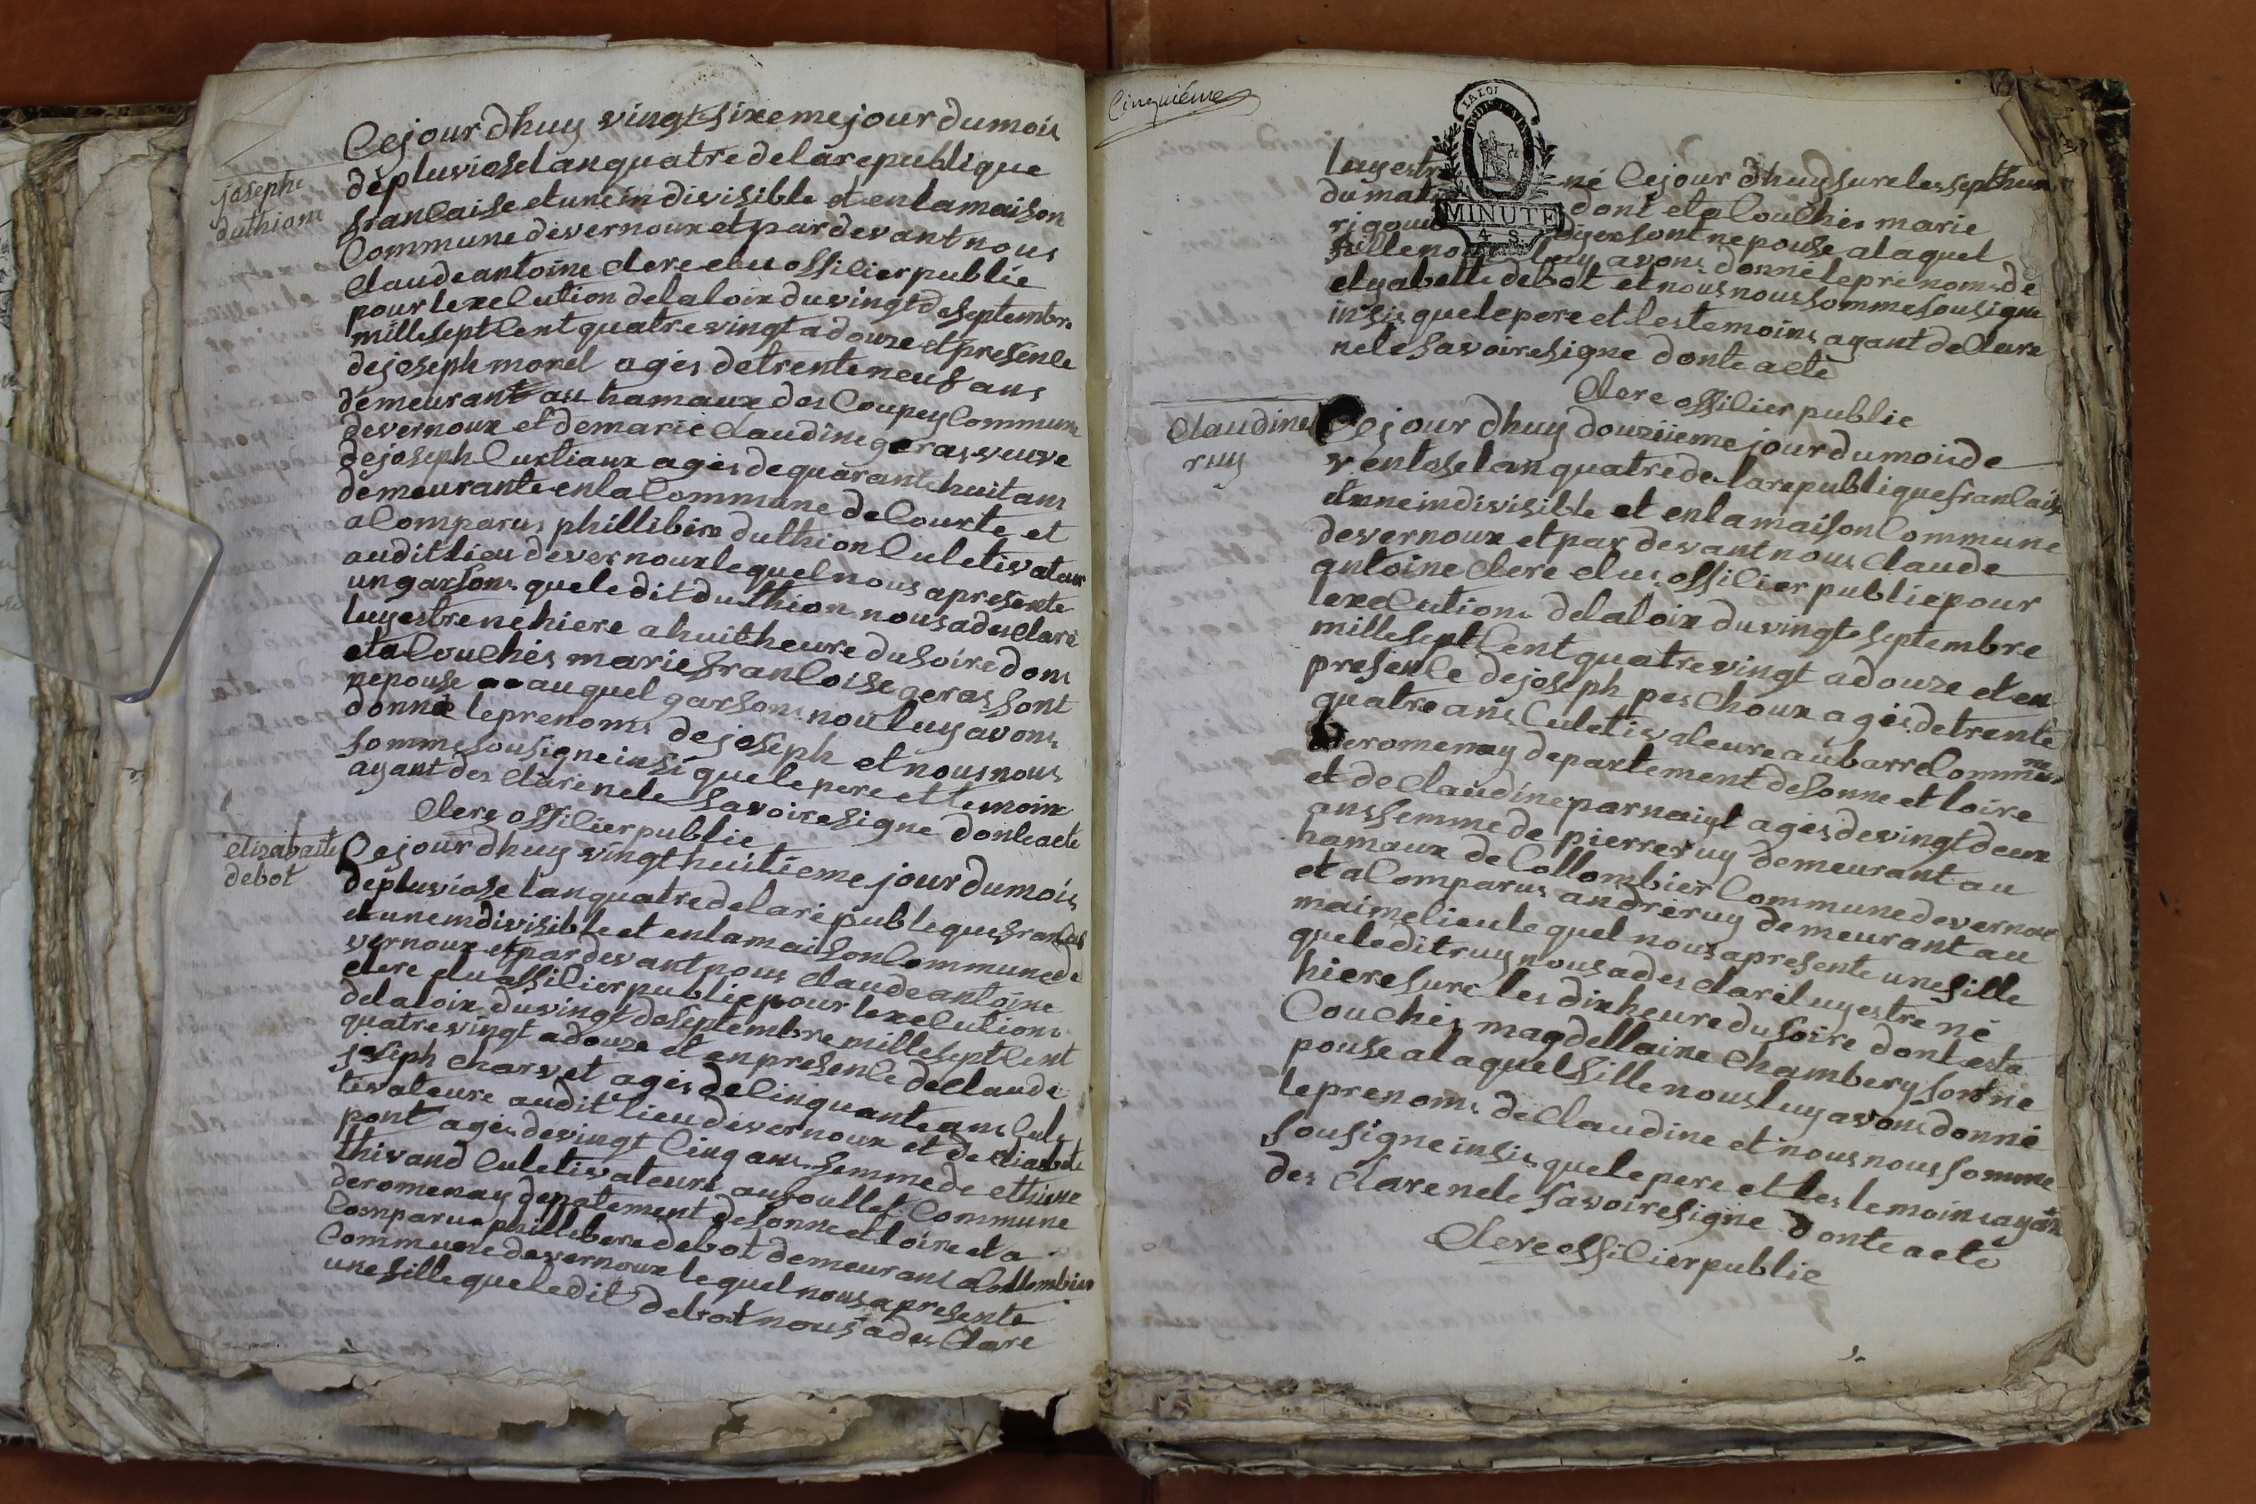 josephe
duthion
Cejour Dhuy vingt sixeme jour du mois
de pluviose lan quatre de la republique
francaise et une in divisible et en la maison
Commune de vernoux et par devant nous
Claude antoine Clere elu officier public
pour lexecution de la loix du vingt de septembre
mille sept Cent quatre vingt a douze et presence
de joseph morel agés de trente neuf ans
demeurant au hamaux des Coupey Commune
de vernoux et de marie Claudine geras veuve
de joseph Curtiaux agés de quarante huit ans
demeurante en la Commune de Courte et
a Comparus phillibire duthion Culetivateur
audit lieu de vernoux lequel nous a presente
un garson que le dit duthion nous a des Claré
luy estre né hiere a huit heure du soire dont
est a Couchés marie francoise geras sont
nepouse auquel garson nou luy avons
donné le prenoms de joseph et nous nous
somme sousigne insi que le pere et temoin
ayant des Claré ne le savoire signe dont acte
Clere officier public
elizabaite
debot
Cejour dhuy vingt huitieme jour du mois
de pluviose lan quatre de la re publeque francais
et une indivisible et en la maison Commune de
vernoux et par devant nous Claude antoine
Clere elu officier public pour lexecution
de la loix du vingt de septembre mille sept Cent
quatre vingt a douze et en presence de Claude
joseph Charvet agés de Cinquante ans Cule
tivateure audit lieu de vernoux et de eliasbete
pont agés de vingt Cinq ans femme de ettiene
thivand Culetivateure au foullet Commune
de romenay depatement de sonne et loire et a
Comparu phillebere debot demeurant a Collombier
Commune de vernoux le quel nous a presente
une fille que le dit debot nous a des Clare
Cinquiéme
LA LOI
MINUTE
luy estre né Cejour dhuy sure les sept heure
du mat dont et a Couchés marie
rigou sont nepouse a laquel
fille nou luy avons donné le prenom de
elyzabette debot et nous nous somme sousigne
insi que le pere et les temoins ayant declare
ne le savoire signe dont acte
Clere officier public
Claudine
ruy
Cejour dhuy douziieme jour du mois de
ventose lan quatre de la republique francaise
et une indivisible et en la maison Commune
de vernoux et par devant nous Claude
antoine Clere elus officier public pour
lexecution de la loix du vingt septembre
mille sept Cent quatre vingt a douze et en
presence de joseph peschoux agés de trente
quatre ans Culetivateure au barre Commune
de romenay departement de sonne et loire
et de Claudine parnaigt agés de vingt deux
ans femme de pierre ruy demeurant au
hamaux de Collombier Commune de vernoux
et a Comparus andré ruy demeurant au
maime lieu le quel nous a presente une fille
que le dit ruy nous a des Claré luy estre né
hiere sure les dix heure du soire dont est a
Couchés magdellaine Chambery sont ne
pouse a laquel fille nous luy avons donné
le prenoms de Claudine et nous nous somme
sousigne insi que le pere et les temoin ayant
des Clare ne le savoire signe Dont acte
Clere officier public